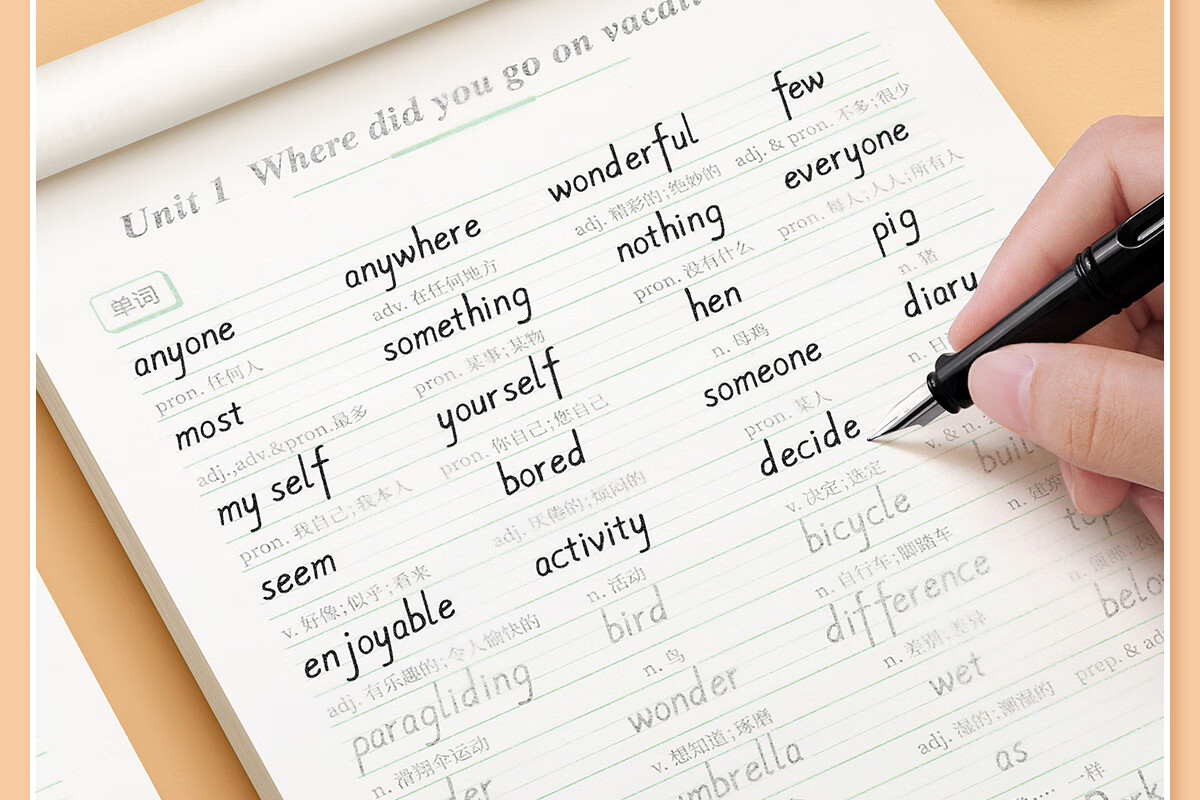 Unit 1 Where did you go on
单词
anyone anywhere wonderful few
pron. 任何人 adv. 在任何地方 adj. 精彩的;绝妙的 adj. & pron. 不多;很少
most something nothing everyone
adj.,adv.&pron.最多 pron. 某事;某物 pron. 没有什么 pron. 每人;人人;所有人
my self yourself hen pig
pron. 我自己;我本人 pron. 你自己;您自己 n. 母鸡 n. 猪
seem bored someone diaru
v. 好像;似乎;看来 adj. 厌倦的;烦闷的 pron. 某人 n. 日
enjoyable activity decide
adj. 有乐趣的;令人愉快的 n. 活动 v. 决定;选定 v. & n.
paragliding bird bicycle
n. 滑翔伞运动 n. 鸟 n. 自行车;脚踏车 n.
wonder difference
v. 想知道;琢磨 n. 差别;差异 n.
wet
adj. 湿的;潮湿的 prep. &
as
一样